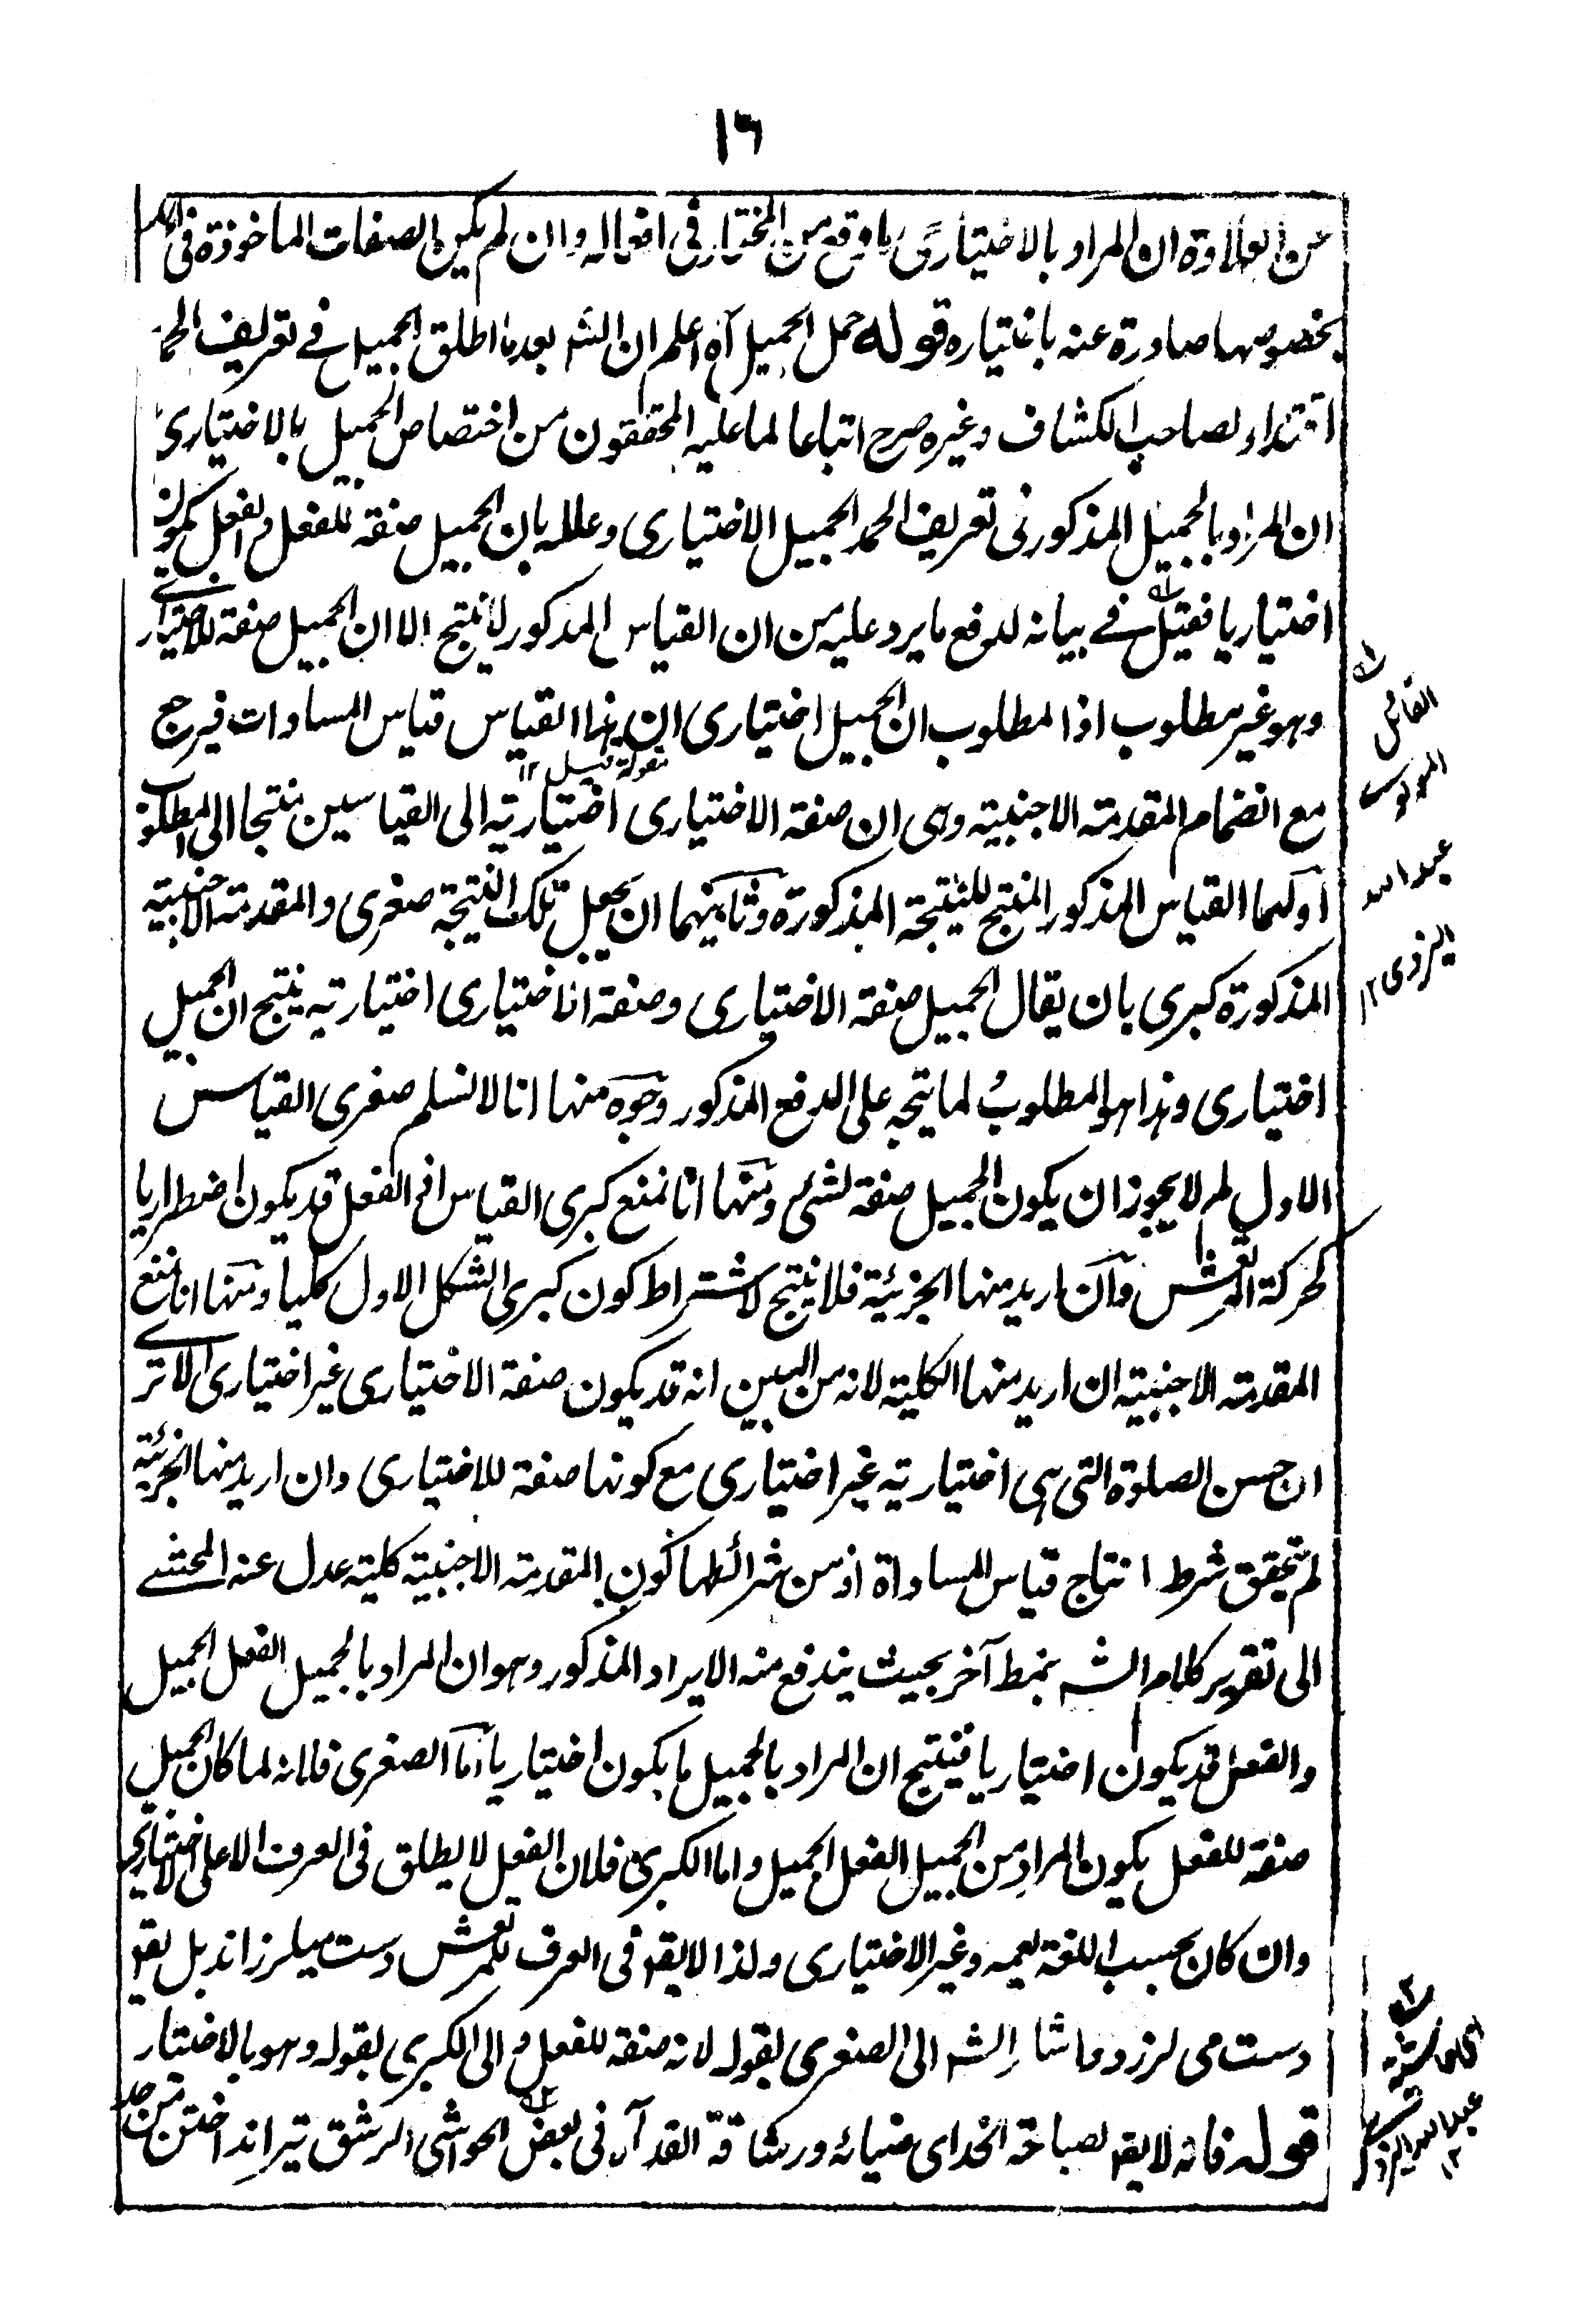 ١٦
عن العلاوة ان المراد بالاختياری ما وقع من المختار فی افعاله وان لم یکن الصفات الماخوذة فی
بخصوصها صادرة عنه باختیاره قوله حمل الجمیل آه اعلم ان الشہ بعد ما اطلق الجمیل فے تعریف الحمد
اقتداء لصاحب الکشاف وغیره صرح اتباعا لما علیه المحققون من اختصاص الجمیل بالاختیاری
ان المراد بالجمیل المذکور فی تعریف الحمد الجمیل الاختیاری وعلله بان الجمیل صفة للفعل والفعل یکون
اختیاریا فقیل فے بیانه لدفع ما یرد علیه من ان القیاس المذکور لا ینتج الا ان الجمیل صفة للاختیاری
وهو غیر مطلوب اذا المطلوب ان الجمیل اختیاری ان هذا القیاس قیاس المساوات فیرجع
مقولة قیل ١٢
مع انضمام المقدمة الاجنبیة وهی ان صفة الاختیاری اختیاریة الی القیاسین منتجا الی المطلوب
اولهما القیاس المذکور المنتج للنتیجة المذکورة وثانیهما ان یجعل تلک النتیجة صغری والمقدمة الاجنبیة
المذکورة کبری بان یقال الجمیل صفة الاختیاری وصفة الاختیاری اختیاریة ینتج ان الجمیل
اختیاری وهذا هو المطلوب لما یتجه علی الدفع المذکور وجوه منها انا لا نسلم صغری القیاس
الاول لم لا یجوز ان یکون الجمیل صفة لشئ ومنها انا نمنع کبری القیاس اذ الفعل قد یکون اضطراریا
کحرکة المرتعش وان ارید منها الجزئیة فلا ینتج لاشتراط کون کبری الشکل الاول کلیا ومنها انا نمنع
المقدمة الاجنبیة ان ارید منها الکلیة لانه من البین انه قد یکون صفة الاختیاری غیر اختیاری الا تری
ان حسن الصلوة التی هی اختیاریة غیر اختیاری مع کونها صفة للاختیاری وان ارید منها الجزئیة
لم یتحقق شرط انتاج قیاس المساواة اذ من شرائطها کون المقدمة الاجنبیة کلیة عدل عنه المحشے
الی تقریر کلام الشہ بنمط آخر بحیث یندفع منه الایراد المذکور وهو ان المراد بالجمیل الفعل الجمیل
والفعل قد یکون اختیاریا فینتج ان المراد بالجمیل ما یکون اختیاریا اما الصغری فلانه لما کان الجمیل
صفة للفعل یکون المراد من الجمیل الفعل الجمیل واما الکبری فلان الفعل لا یطلق فی العرف الا علی الاختیاری
وان کان بحسب اللغة یعمه وغیر الاختیاری ولذا لا یقہ فی العرف للمرتعش دست میلرزاند بل یقہ
دست می لرزد وما شار الشہ الی الصغری بقوله لانه صفة للفعل والی الکبری بقوله وهو بالاختیار
قوله فانه لا یقہ لصباحة الخد ای ضیائه ورشاقة القد آه فی بعض الحواشی الرشق تیر انداختن من حد
القائل
عبد الله
الیزدی ١٢
عبد الله الیزدی
١٢